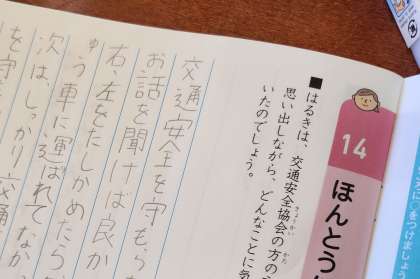 14
ほんとう
■はるきは、交通安全協会の方の
きょうかい
かた
思い出しながら、どんなことに気
いたのでしょう。
交通安全を守もら
お話を聞けば良か
右、左をたしかめたら
ゅう車に運ばれてなか
次は、しっかり交通
を守
に○をつけましょう